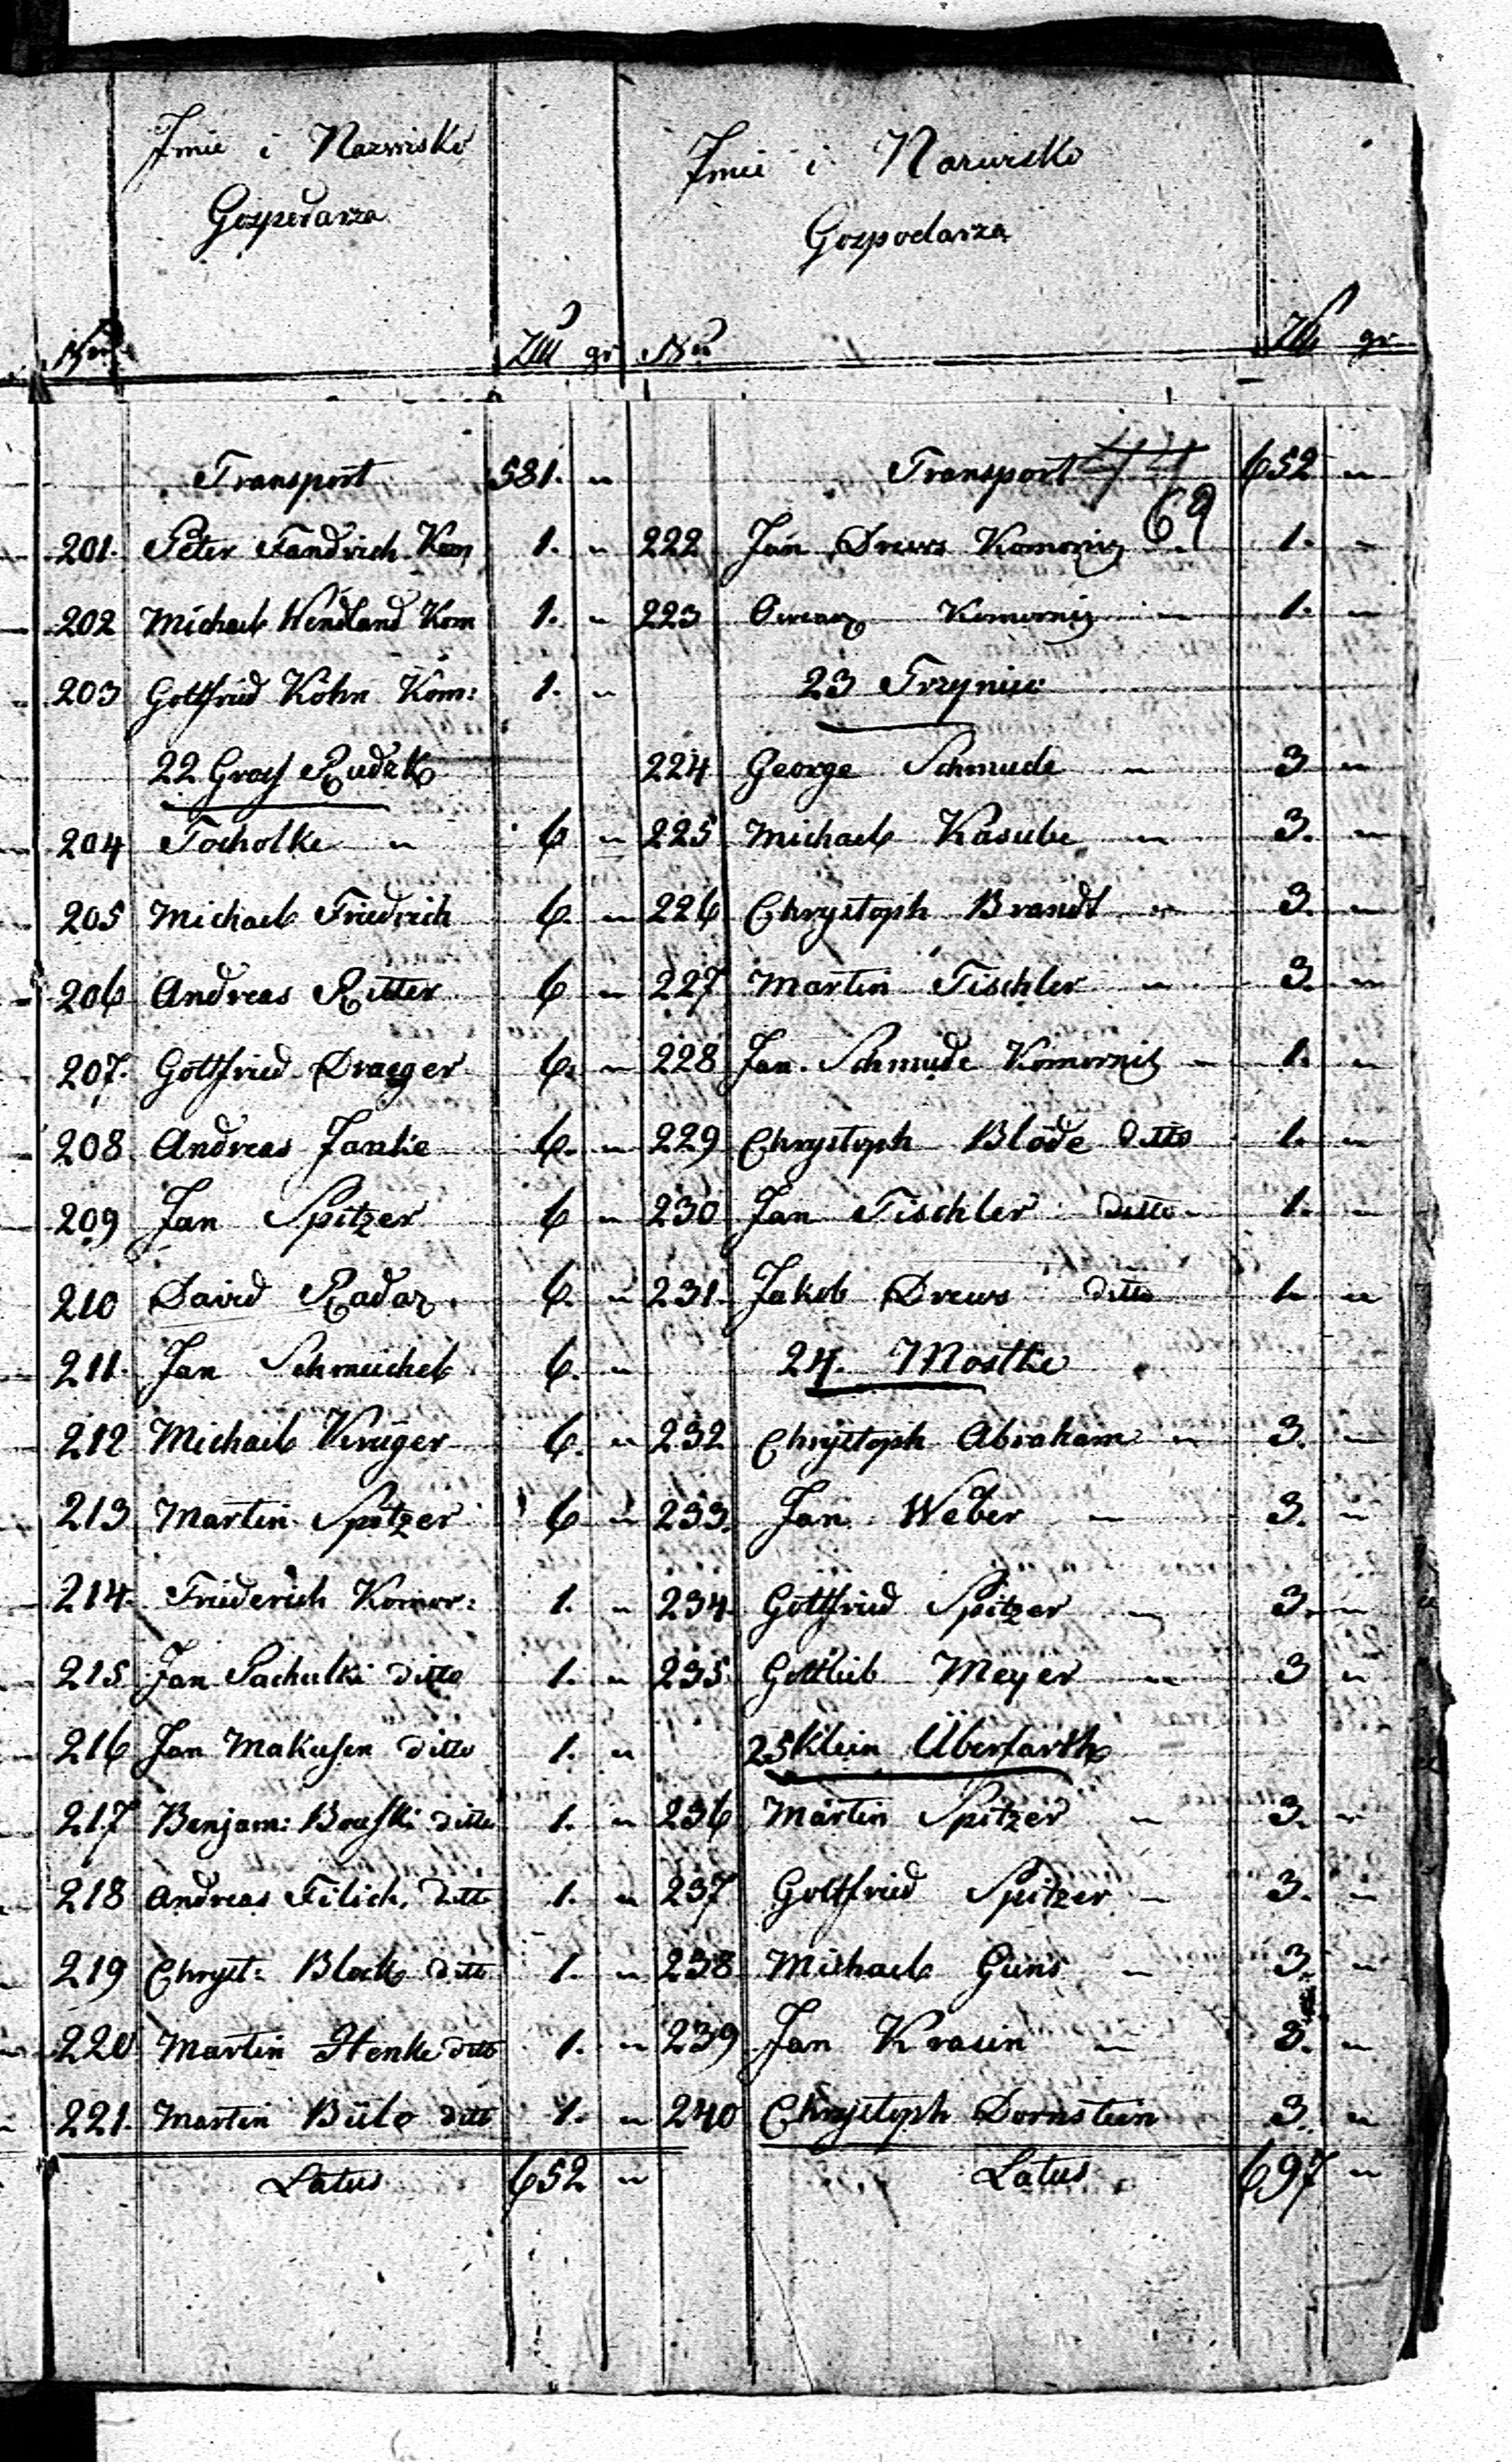 Imie i Nazwisko
Gospodarza
Nro Złl gr
Transport 581. "
201. Peter Fandrich Kom 1. "
202 Michael Wendland Kom 1. "
203 Gottfried Kohn Kom: 1. "
22 Gross Rudzk
204 Tocholke " 6 "
205 Michael Friedrich 6. "
206 Andreas Ritter 6 "
207. Gottfried Draeger 6. "
208 Andreas Janke 6. "
209 Jan Spitzer 6 "
210 David Radaz 6. "
211. Jan Schmichel 6. "
212 Michael Krüger 6. "
213 Martin Spitzer 6 "
214. Friederich Komor: 1. "
215 Jan Sachulki ditto 1. "
216 Jan Makusen ditto 1. "
217 Benjam: ditto 1. "
218 Andreas Filich. ditto 1. "
219 Chryst: Block ditto 1. "
220 Martin Henke ditto 1. "
221. Martin Bülo ditt 1. "
Latus 652 "
Imie i Nazwisko
Gospodarza
Nro Złl gr
Transport 652 "
69
222 Jan Drews Komorniz " 1. "
223 Komorniz " 1. "
23 Trzyniec
224 George Schmude " 3 "
225 Michael Kasube " 3. "
226 Chrystoph Brandt " 3. "
227 Martin Tischler " 3. "
228 Jan. Schmude Komorniz " 1. "
229 Chrystoph Blöde ditto 1. "
230 Jan Tischler ditto " 1. "
231. Jakob Drews ditto 1. "
24. Mostke
232 Chrystoph Abraham " 3. "
233. Jan Weber " 3. "
234 Gottfried Spitzer " 3. "
235 Gottlieb Meyer " 3 "
25 Klein Überfarth
236 Martin Spitzer " 3. "
237 Gottfried Spitzer " 3. "
238 Michael Güns " 3. "
239 Jan Krasin " 3. "
240 Chrystoph Dornstein 3. "
Latus 697 "